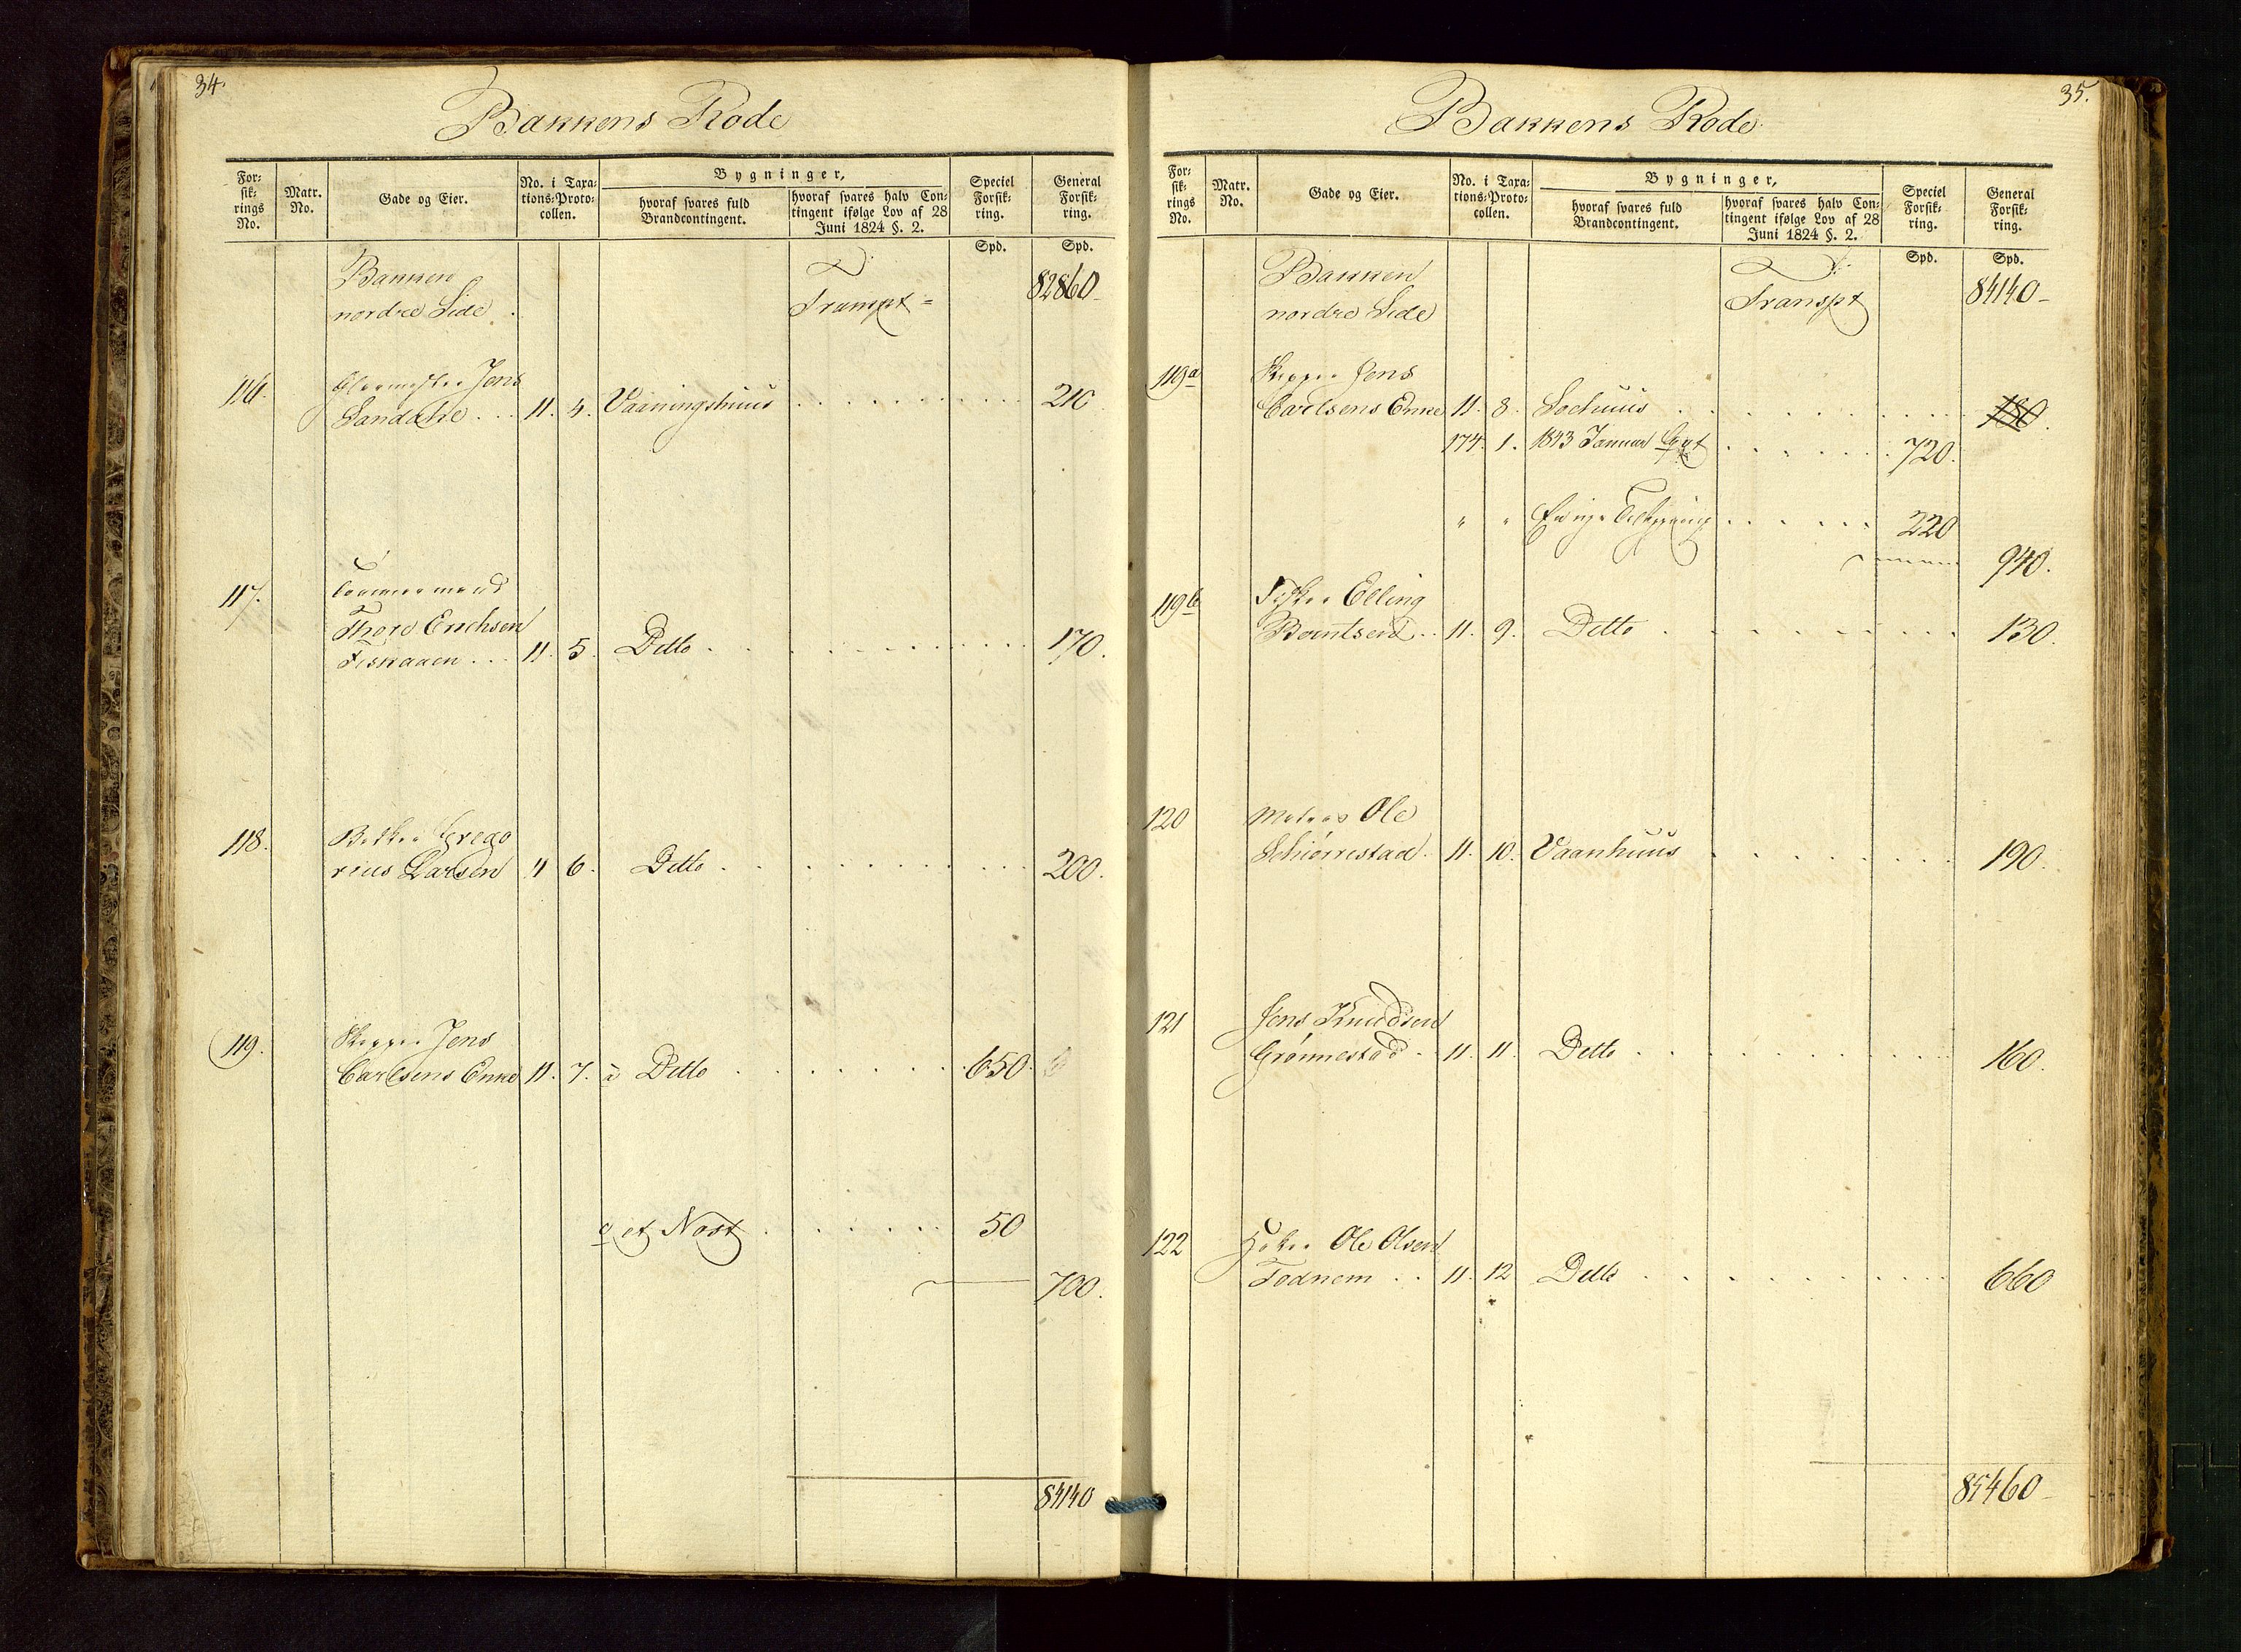 34.
Bakkens Rode
For-
sik-
rings
No.
Matr.
No.
Gade og Eier.
No. i Taxa-
tions-Proto-
collen.
Bygninger,
hvoraf svares fuld
Brandcontingent.
hvoraf svares halv Con-
tingent ifølge Lov af 28
Juni 1824 §. 2.
Speciel
Forsik-
ring.
General
Forsik-
ring.
Spd. Spd.
Bakken
nordre Side
Transpt = 82860
116. Jens
11. 4. Vaaningshuus 210
117. Tømmermand
Thore Erichsen
Fiskaaen 11. 5. Ditto 170.
118. Grego
rius Larsen 11 6. Ditto 200.
119. Skipper Jens
Carlsens Enke 11. 7. a Ditto 650.
et Nøst 50
700.
84140
35.
Bakkens Rode
For-
sik-
rings
No.
Matr.
No.
Gade og Eier.
No. i Taxa-
tions-Proto-
collen.
Bygninger,
hvoraf svares fuld
Brandcontingent.
hvoraf svares halv Con-
tingent ifølge Lov af 28
Juni 1824 §. 2.
Speciel
Forsik-
ring.
General
Forsik-
ring.
Spd. Spd.
Bakken
nordre Side
Transpt 84140
119a Skipper Jens
Carlsens Enke 11. 8. Søehuus 180.
174. 1. 1843 Januar 720.
" " 220
940.
119b Fisker Elling
Berntsen 11. 9. Ditto 130.
120 Matros Ole
Schiørrestad 11. 10. Vaanhuus 190.
121 Jens Knudsen
Grønnestad 11. 11. Ditto 160.
122 Høker Ole Olsen
Todnem 11. 12 Ditto 660
85460